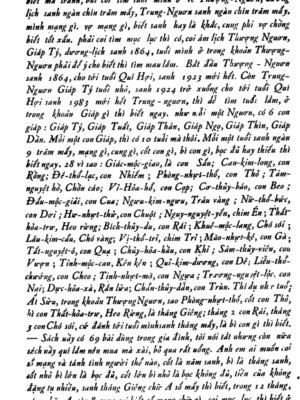 lịch sanh ngàn chín trăm mấy, Trung-Ngươn sanh ngàn chín trăm mấy,
mình mạng gì, vợ mạng gì, biết xanh hay là khắc, cung phi vợ chồng
biết tốt xấu, phải coi tìm mục lục thì có, coi ám lịch Thượng Ngươn,
Giáp Tý, dương-lịch sanh 1864, tuổi mình ở trong khoản Thượng-
Ngươn phải để ý cho biết thì tìm mau lắm. Bắt đầu Thượng - Ngươn
sanh 1864, cho tới tuổi Quí Hợi, sanh 1923 mới hết. Còn Trung-
Ngươn Giáp Tý tuổi nhỏ, sanh 1924 trở xuống cho tới tuổi Quí
Hợi sanh 1983 mới hết Trung - ngươn, thì dễ tìm tuổi lắm, ở
trong khoản Giáp gì thì biết ngay. như nỗi một Ngươn, có 6 con
giáp : Giáp Tý, Giáp Tuất, Giáp Thân, Giáp Ngọ, Giáp Thìn, Giáp
Dần. Mỗi một con Giáp, thì có 10 tuổi mà thôi. Mỗi một tuổi sanh ngàn
9 trăm mấy, mạng gì, cung gì, cốt con gì, bì con gì, bọc đủ hay thiếu thì
biết ngay. 28 vì sao : Giác-mộc-giao, là con Sấu; Can-kim-long, con
Rồng; Đê-thổ-lạc, con Nhiếm ; Phòng-nhựt-thố, con Thỏ ; Tâm-
nguyệt hồ, Chồn cáo; Vĩ-Hỏa-hổ, con Cọp; Cơ-thủy-báo, con Beo ;
Đẩu-mộc-giải, con Cua; Ngưu-kim-ngưu, Trâu vàng ; Nữ-thổ-bức,
con Dơi ; Hư-nhựt-thử, con Chuột ; Nguy-nguyệt-yến, chim Én ; Thất-
hỏa-trư, Heo rừng; Bích-thủy-du, con Rái ; Khuê-mộc-lang, Chó sói ;
Lâu-kim-cẩu, Chó vàng; Vị-thổ-trĩ, chim Trĩ ; Mão-nhựt-kê, con Gà ;
Tất-nguyệt-ô, con Quạ ; Chủy-hỏa-hầu, con Khỉ ; Sâm-thủy-viên, con
Vượn ; Tỉnh-mộc-can, Kên kên ; Quỉ-kim-dương, con Dê ; Liễu-thổ-
chướng, con Cheo ; Tinh-nhựt-mã, con Ngựa ; Trương-nguyệt-lộc, con
Nai; Dực-hỏa-xà, Rắn lửa; Chẩn-thủy-dẫn, con Trùn. Thí dụ như tuổi
Ất Sửu, trong khoản Thượng Ngươn, sao Phòng-nhựt-thố, cốt con Thỏ,
bì con Thất-hỏa-trư, Heo Rừng, là tháng Giêng; tháng 2 con Rái, tháng
3 con Chó sói, cứ đánh tới tuổi mình sanh tháng mấy, là bì con gì thì biết.
— Sách nầy có 69 bài dùng trong gia đình, tôi nói tắt nhưng còn nữa
xếch nầy qui lắm nên mua mà xài, bỏ qua rất uổng. Anh em ai muốn coi
số mạng và tánh tình người thế nào, cốt là năm sanh, bì là tháng sanh,
cốt nhỏ bì lớn là bọc đủ, cốt lớn bì nhỏ là bọc không đủ, tiền của không
đặng tụ nhiều, sanh tháng Giêng chữ A số mấy thì biết, trong 12 tháng,